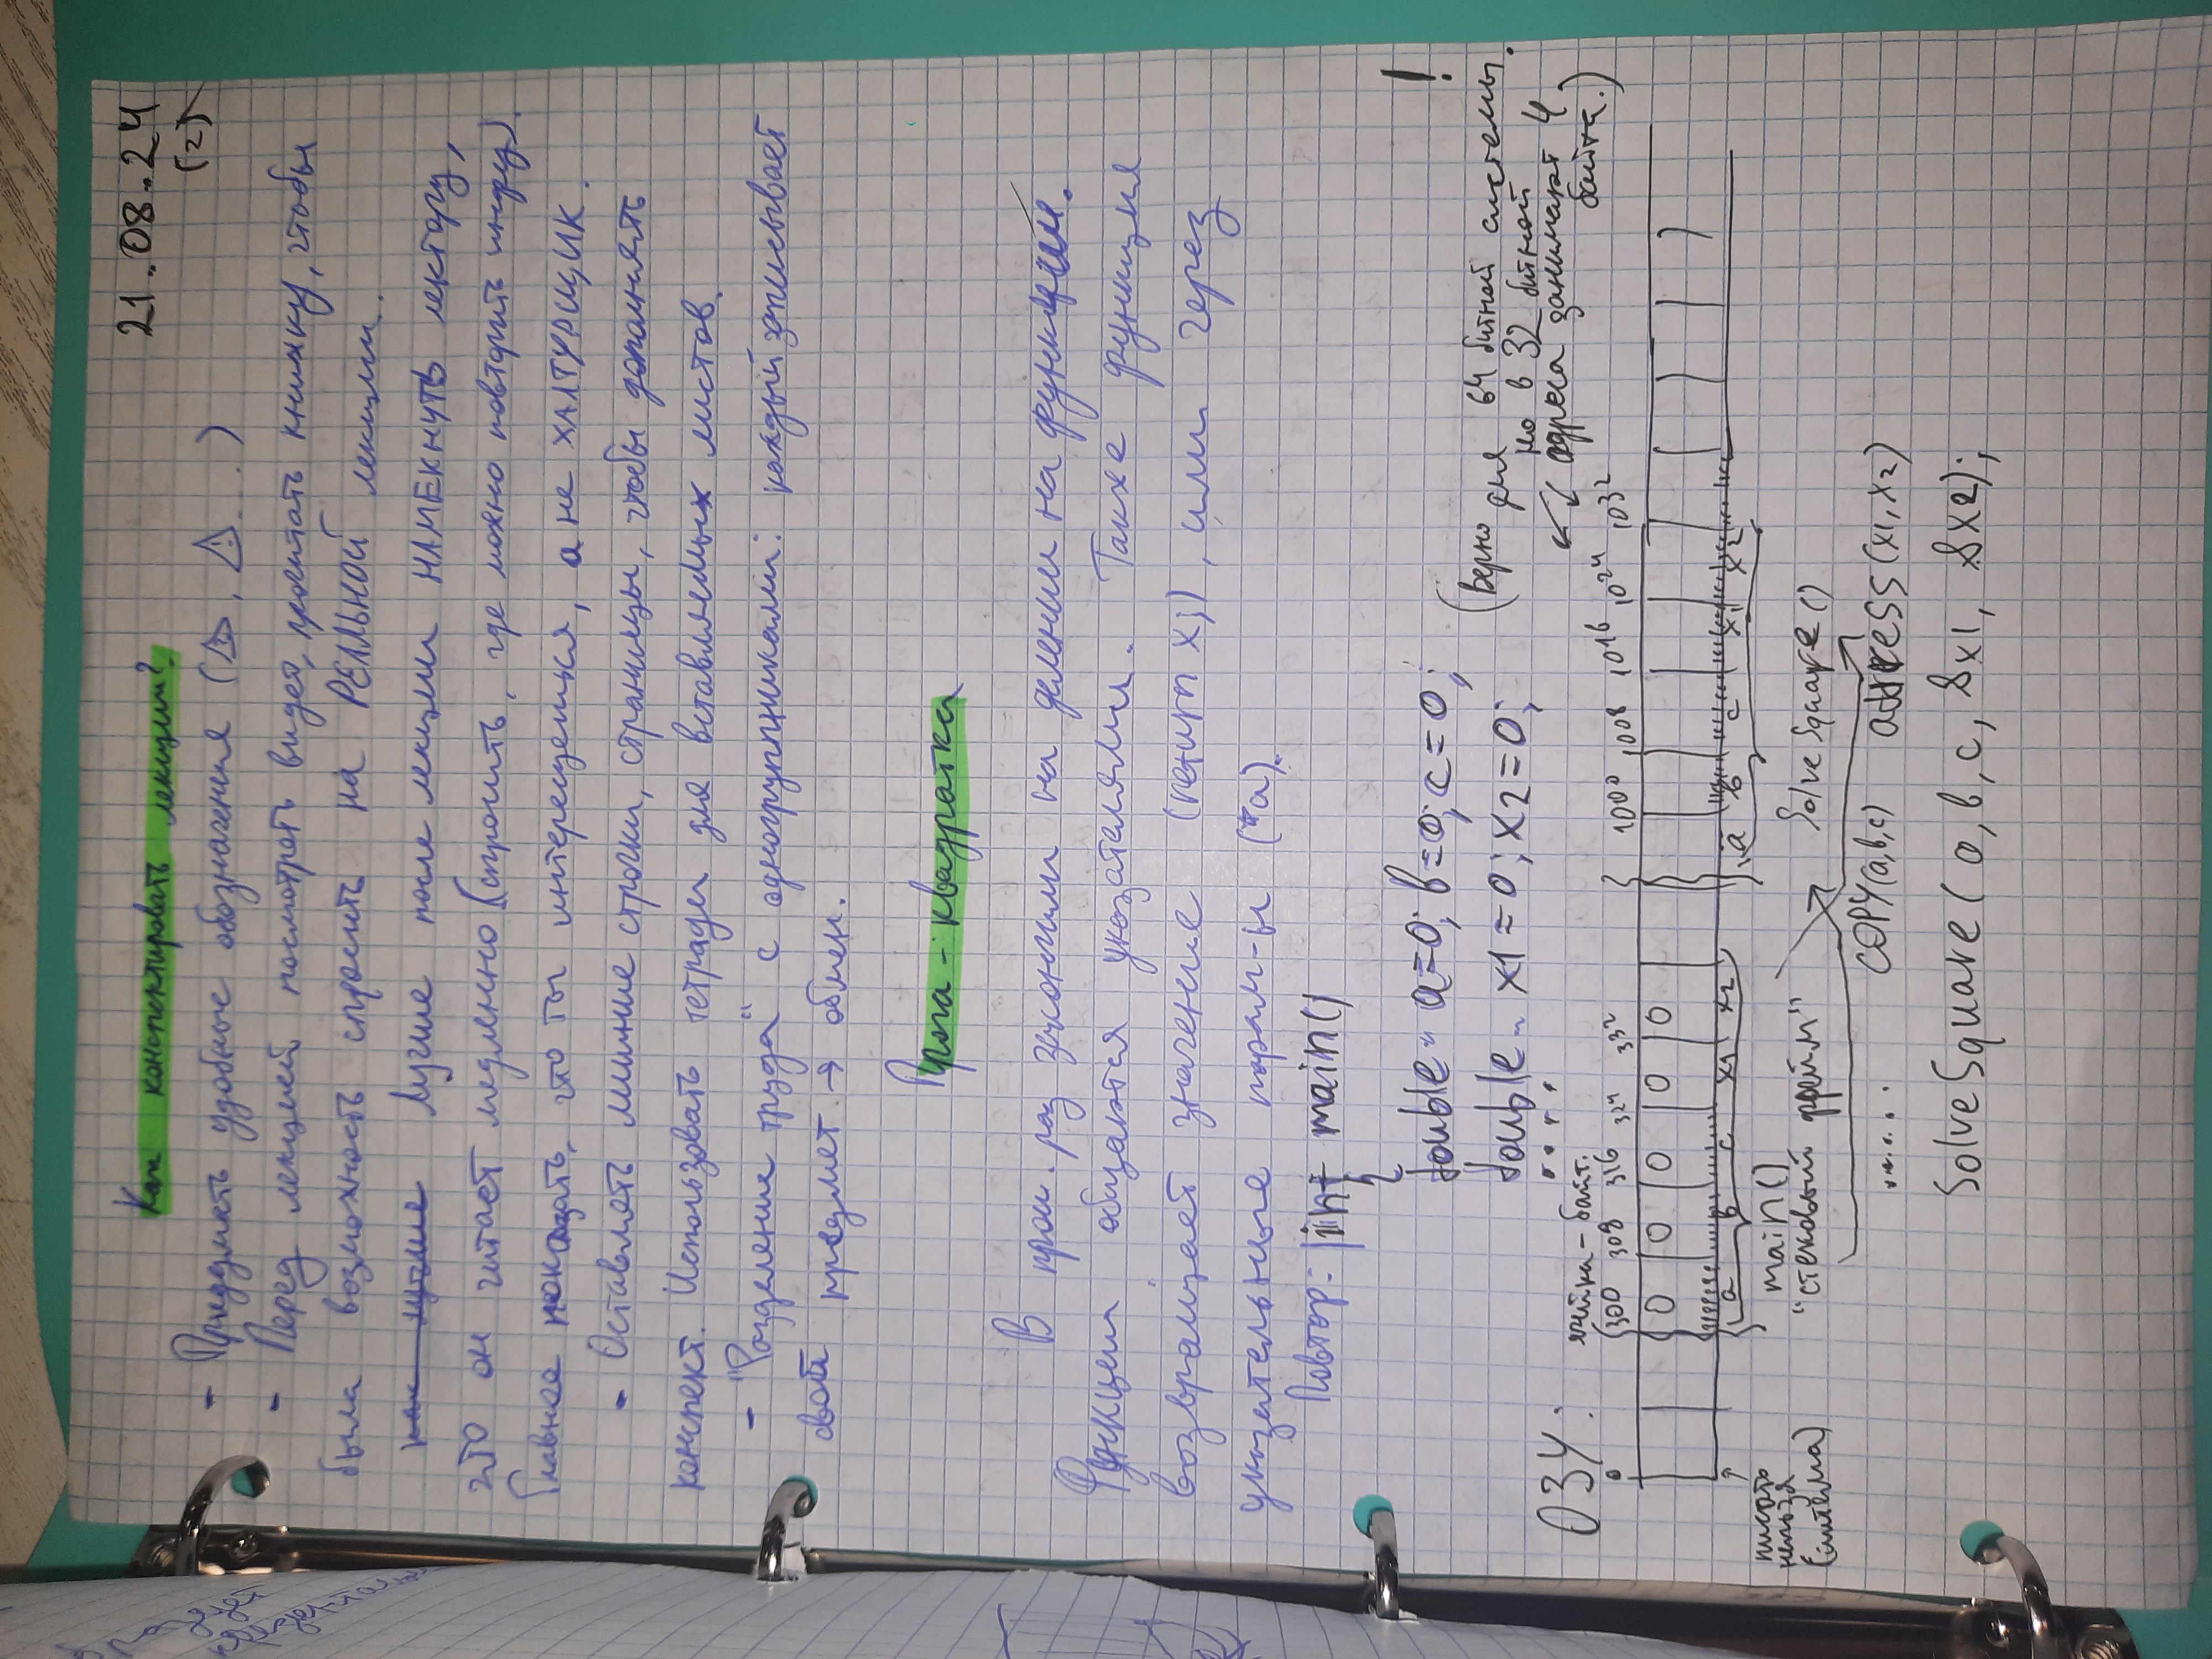 21.08.24
(2)
Как конспектировать лекции?
- Придумать удобные обозначения ( , ... )
- Перед лекцией посмотреть видео, прочитать книжку, чтобы
была возможность спросить на РЕАЛЬНОЙ лекции.
как лучше Лучше после лекции НАМЕКНУТЬ лектору,
что он читает медленно (спросить, где можно повторить инфу).
Главное показать, что ты интересуешься, а не ХАЛТУРЩИК.
- Оставлять лишние строчки, страницы, чтобы дополнять
конспект. Использовать тетради для вставляемых листов.
- "Разделение труда" с одногруппниками: каждый записывает
свой предмет → обмен.
Прога - квадратка
В прош. раз закончили на делении на функции.
Функции общаются указателями. Также функция
возвращает значение (return x;), или через
указательные парам-ы (*a).
Повтор: int main()
{
double a=0; b=0; c=0;
double x1=0; x2=0;
....
!
(Верно для 64 битной системы.
но в 32 битной
адреса занимают 4
байта.)
ОЗУ:
ячейка - байт.
0 300 308 316 324 332 1000 1008 1016 1024 1032
0 0 0 0 0
a b c x1 x2 a b c x1 x2
писать
нельзя
(система)
main()
"стековый фрейм"
SolveSquare()
COPY(a,b,c) address(x1,x2)
......
SolveSquare(a, b, c, &x1, &x2);